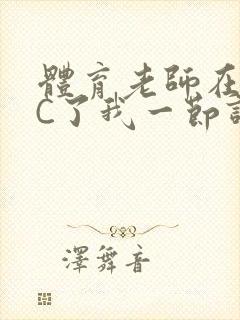 體育老師在
C了我一節
澤舞音